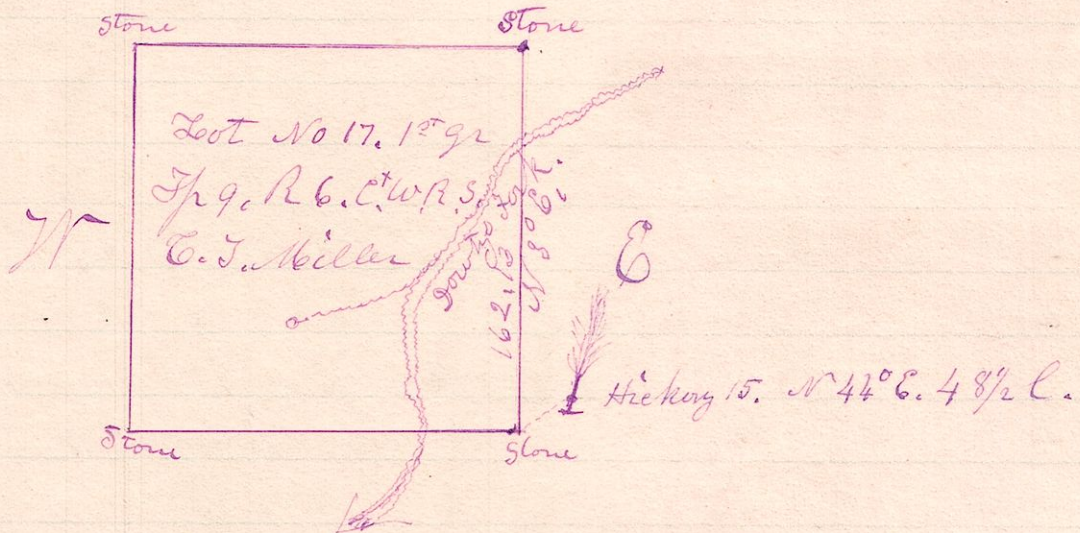 Stone
Stone
Lot No 17. 1st qr
Tp 9. R 6. Ct W. R. S.
C. T. Miller
W
E
162.13
N 3° E.
Hickory 15. N 44° E. 48½ l.
Stone
Stone